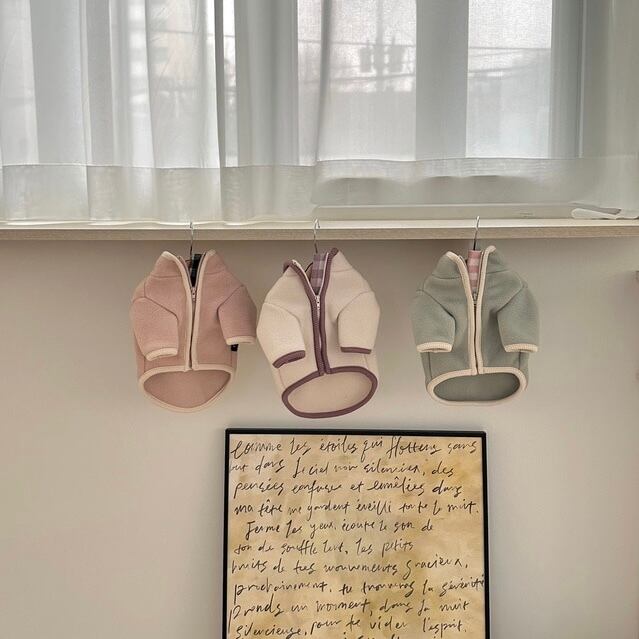 Comme les étoiles qui flottent sans
but dans le ciel non silencieux, des
pensées confuses et emêlées dans
ma tête me gardent éveillé toute la nuit.
Ferme les yeux, écoute le son de
ton de souffle lent, les petits
bruits de tes mouvements gracieux,
prochainement, tu trouveras la sérénité
Prends un moment, dans la nuit
silencieuse, pour te vider l'esprit.